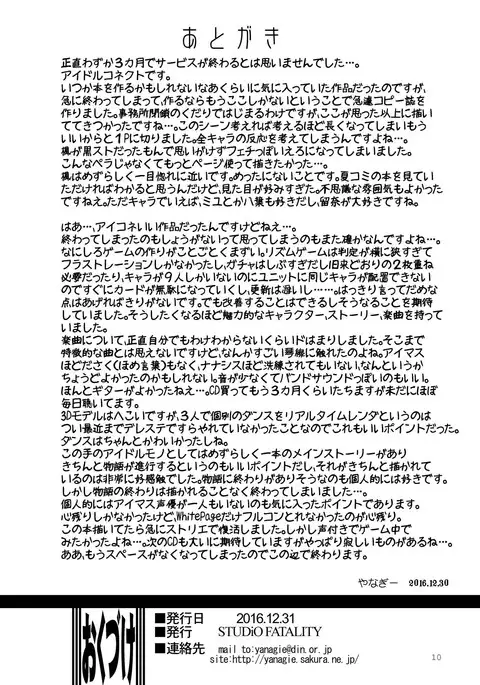 あとがき
正直わずか3カ月でサービスが終わるとは思いませんでした…。
アイドルコネクトです。
いつか本を作るかもしれないなあくらいに気に入っていた作品だったのですが、
急に終わってしまって、作るならもうここしかないということで急遽コピー誌を
作りました。事務所閉鎖のくだりではじまるわけですが、ここが思った以上に描い
ててきつかったですね…。このシーン考えれば考えるほど長くなってしまいもう
いいからと1Pに切りました。全キャラの反応を考えてしまうんですよね…。
楓が黒ストだったもんで思いがけずフェチっぽいえろになってしまいました。
こんなペラじゃなくてもっとページ使って描きたかった…。
楓はめずらしく一目惚れに近いです。めったにないことです。夏コミの本を見てい
ただければわかると思うんだけど、見た目が好みすぎた。不思議な雰囲気もよかった
ですねえ。ただキャラでいえば、ミユとか八葉も好きだし、留奈が大好きですね。
はあ…、アイコネいい作品だったんですけどねえ…。
終わってしまったのもしょうがないって思ってしまうのもまた確かなんですよね…。
なにしろゲームの作りがことごとくまずい。リズムゲームは判定が横に狭すぎて
フラストレーションしかなかったし、ガチャはしぶすぎだし旧来どおりの2枚重ね
必要だったり、キャラが9人しかいないのにユニットに同じキャラが配置できない
のですぐにカードが無駄になっていくし、更新は遅いし……。はっきり言ってだめな
点はあげればきりがないです。でも改善することはできるしそうなることを期待
していました。そうしたくなるほど魅力的なキャラクター、ストーリー、楽曲を持って
いました。
楽曲について、正直自分でもわけわからないくらいドはまりしました。そこまで
特徴的な曲とは思えないですけど、なんかすごい琴線に触れたのよね。アイマス
ほどださく(ほめ言葉)もなく、ナナシスほど洗練されてもいない、なんというか
ちょうどよかったのかもしれない。音が少なくてバンドサウンドっぽいのもいい。
ほんとギターがよかったねえ…。CD買ってもう3カ月くらいたちますが未だにほぼ
毎日聴いてます。
3Dモデルはへこいですが、3人で個別のダンスをリアルタイムレンダというのは
つい最近までデレステですらやれていなかったことなのでこれもいいポイントだった。
ダンスはちゃんとかわいかったしね。
この手のアイドルモノとしてはめずらしく一本のメインストーリーがあり
きちんと物語が進行するというのもいいポイントだし、それがきちんと描かれて
いるのは非常に好感触でした。物語に終わりがありそうなのも個人的には好きです。
しかし物語の終わりは描かれることなく終わってしまいました…。
個人的にはアイマス声優が一人もいないのも気に入ったポイントであります。
心残りしかなかったけど、WhitePageだけフルコンとれなかったのが心残り。
この本描いてたら急にストリエで復活しました。しかし声付きでゲーム中で
みたかったよね…。次のCDも大いに期待していますがやっぱり寂しいものがあるね…。
ああ、もうスペースがなくなってしまったのでこの辺で終わります。
やなぎー　2016.12.30
おくづけ
■発行日　2016.12.31
■発行　STUDiO FATALiTY
■連絡先　mail to:yanagie@din.or.jp
site:http://yanagie.sakura.ne.jp/
10